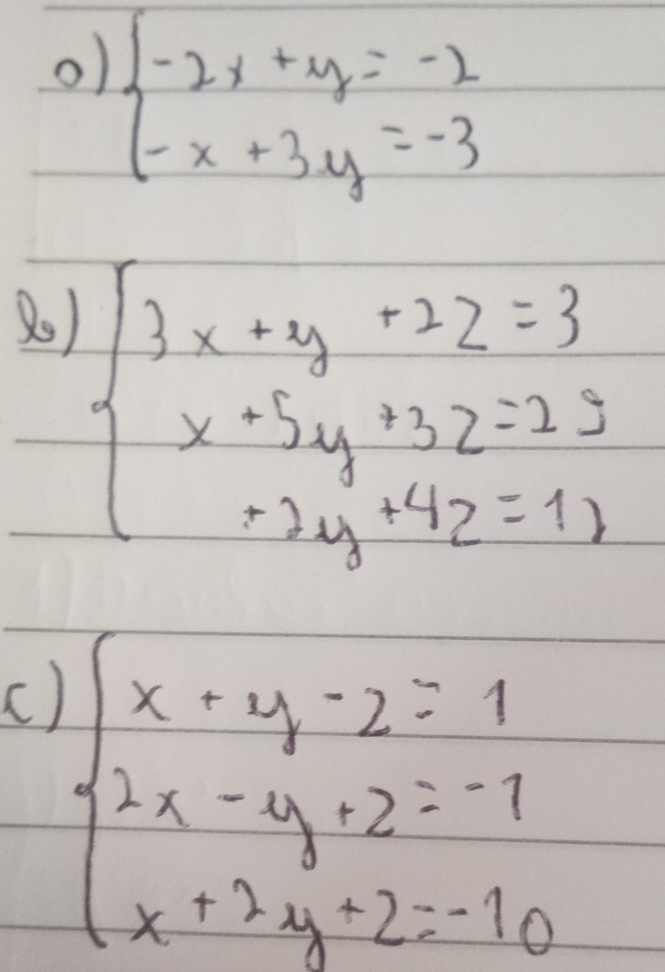 a) -2x + y = -2
-x + 3y = -3
b) 3x + y + 2z = 3
x + 5y + 3z = 29
+ 2y + 4z = 12
c) x + y - z = 1
2x - y + z = -1
x + 2y + z = -10